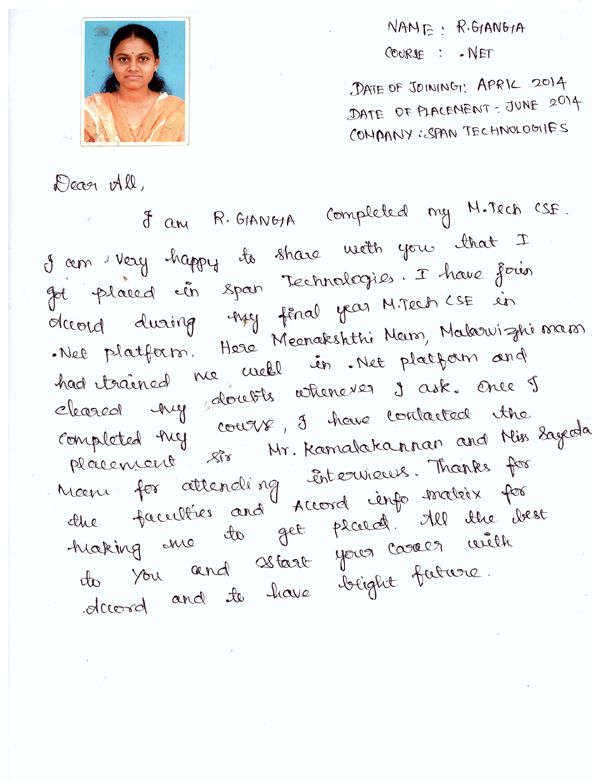 NAME : R.GANGA
COURSE : .NET
DATE OF JOINING: APRIL 2014
DATE OF PLACEMENT: JUNE 2014
COMPANY: SPAN TECHNOLOGIES
Dear All,
I am R. GANGA completed my M.Tech CSE.
I am very happy to share with you that I
got placed in span Technologies. I have join
Accord during my final year M.Tech CSE in
.Net platform. Here Meenakshthi Mam, Malarvizhi mam
had trained me well in .Net platform and
cleared my doubts whenever I ask. Once I
completed my course, I have contacted the
placement sir Mr. Kamalakannan and Miss Sageeta
Mam for attending interviews. Thanks for
the faculties and Accord info matrix for
making me to get placed. All the best
to You and start your career with
Accord and to have bright future.